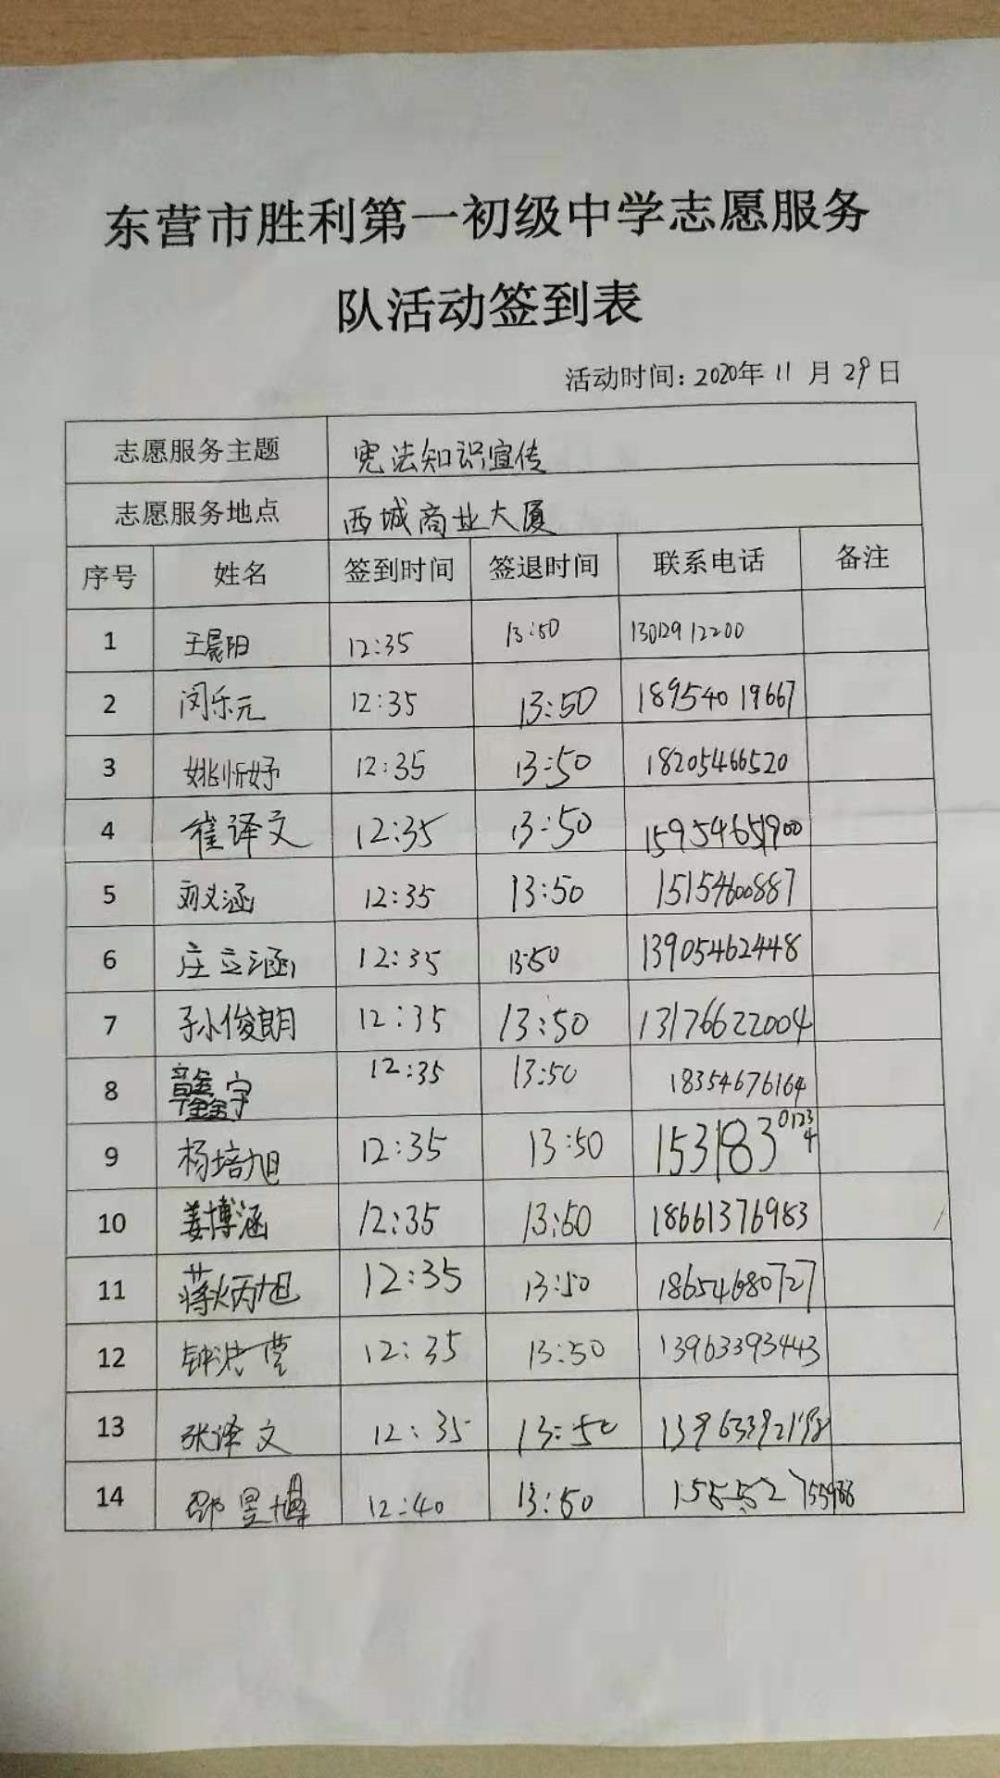 东营市胜利第一初级中学志愿服务
队活动签到表
活动时间：2020年 11 月 29 日
志愿服务主题 宪法知识宣传
志愿服务地点 西城商业大厦
序号 姓名 签到时间 签退时间 联系电话 备注
1 王晨阳 12:35 13:50 13012912200
2 闵乐元 12:35 13:50 18954019667
3 姚忻妤 12:35 13:50 18205466520
4 崔译文 12:35 13:50 15954651900
5 刘义涵 12:35 13:50 15154600887
6 庄立涵 12:35 13:50 13905462448
7 孙俊朗 12:35 13:50 13176622004
8 宇 12:35 13:50 18354676164
9 杨培旭 12:35 13:50 15318301234
10 姜博涵 12:35 13:50 18661376983
11 蒋炳旭 12:35 13:50 18654680727
12 钟洪 12:35 13:50 13963393443
13 张译文 12:35 13:50
14 邵昱博 12:40 13:50